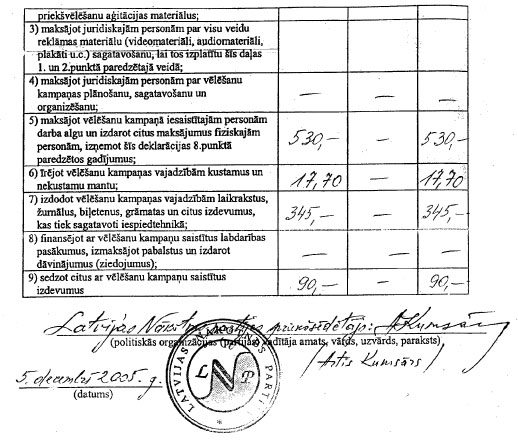 priekšvēlēšanu aģitācijas materiālus;
3) maksājot juridiskajām personām par visu veidu
reklāmas materiālu (videomateriāli, audiomateriāli,
plakāti u.c.) sagatavošanu, lai tos izplatītu šīs daļas
1. un 2.punktā paredzētajā veidā;
4) maksājot juridiskajām personām par vēlēšanu
kampaņas plānošanu, sagatavošanu un
organizēšanu; — — —
5) maksājot vēlēšanu kampaņā iesaistītajām personām
darba algu un izdarot citus maksājumus fiziskajām
personām, izņemot šīs deklarācijas 8.punktā
paredzētos gadījumus; 530,— — 530,—
6) īrējot vēlēšanu kampaņas vajadzībām kustamus un
nekustamu mantu; 17,70 — 17,70
7) izdodot vēlēšanu kampaņas vajadzībām laikrakstus,
žurnālus, biļetenus, grāmatas un citus izdevumus,
kas tiek sagatavoti iespiedtehnikā; 345,— — 345,—
8) finansējot ar vēlēšanu kampaņu saistītus labdarības
pasākumus, izmaksājot pabalstus un izdarot
dāvinājumus (ziedojumus); — — —
9) sedzot citus ar vēlēšanu kampaņu saistītus
izdevumus 90,— — 90,—
Latvijas partijas priekšsēdētājs: AKumsārs
(politiskās organizācijas (partijas) vadītāja amats, vārds, uzvārds, paraksts)
(Artis Kumsārs)
5. decembrī 2005. g.
(datums)
LATVIJAS NĀKOTNES PARTIJA
L N P